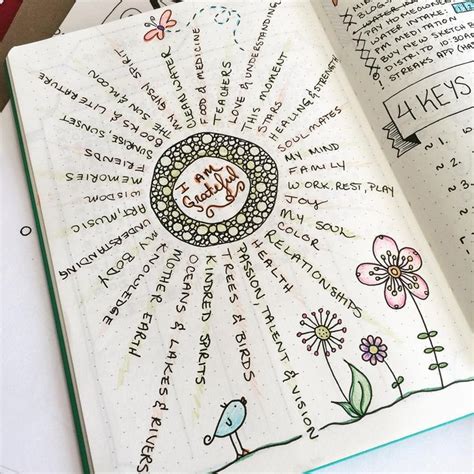 I AM
Grateful
UNDERSTANDING
ART, MUSIC
WISDOM
MEMORIES
FRIENDS
SUNRISE SUNSET
BOOKS & LITERATURE
THE SUN & MOON
MY GYPSY SPIRIT
CLEAN WATER
FOOD & MEDICINE
TEACHERS
LOVE & UNDERSTANDING
THIS MOMENT
STARS
HEALING & STRENGTH
SOULMATES
MY MIND
FAMILY
WORK, REST, PLAY
JOY
MY SOUL
COLOR
RELATIONSHIPS
HEALTH
PASSION, TALENT & VISION
TREES & BIRDS
KINDRED SPIRITS
OCEANS & LAKES & RIVERS
MOTHER EARTH
KNOWLEDGE
MY BODY
WATER INTAKE:
PM MEDITATION
BUY NEW SKETCH
STREAKS APP
4 KEYS
~ 1.
~ 2.
~ 3.
~ 4.